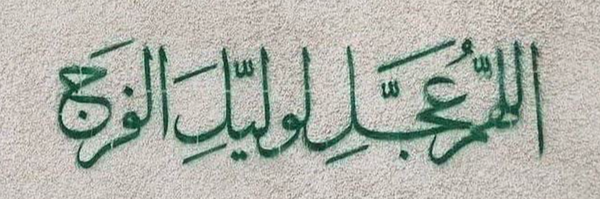 اللهُمّ عَجّلِ لوليّكِ الفرَج